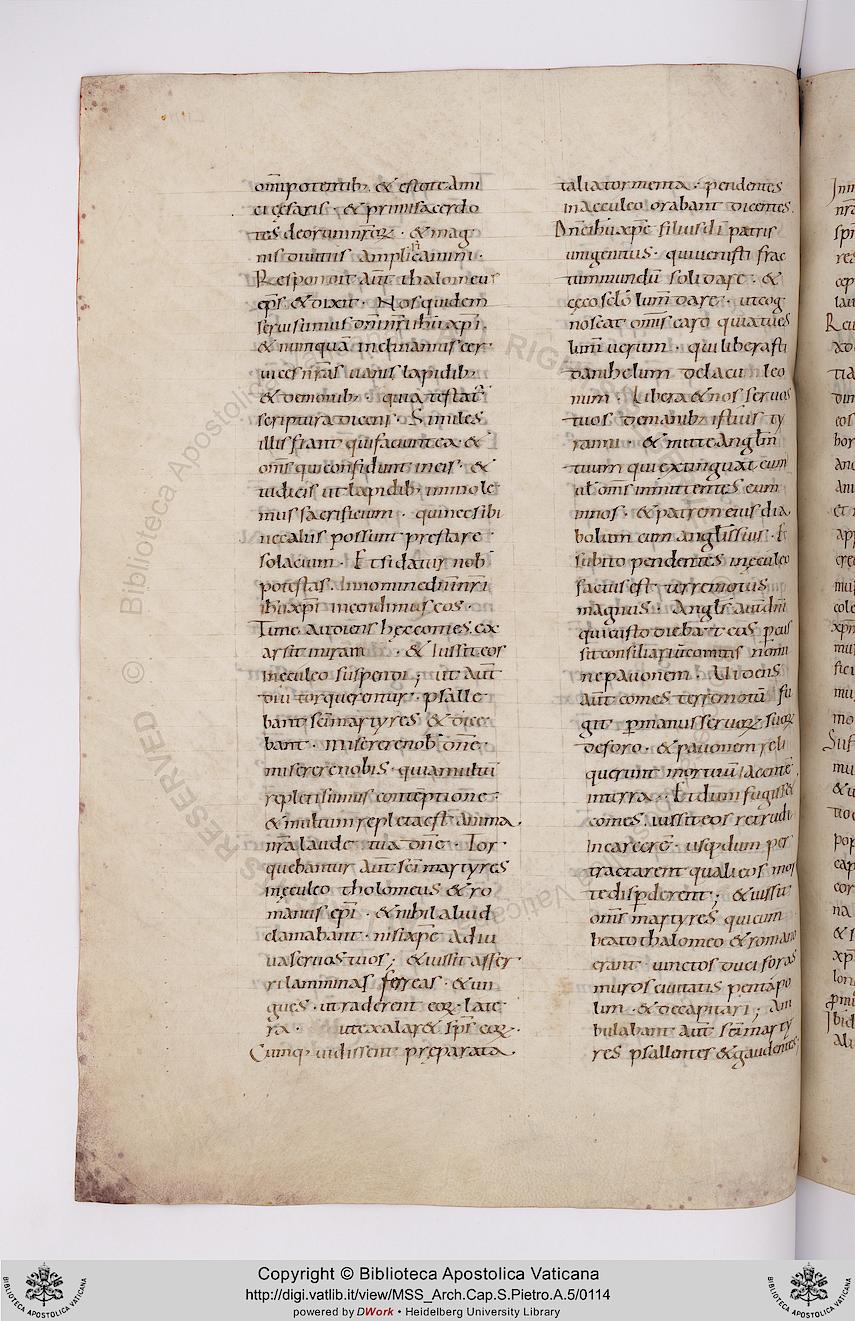 omīpotentib; & estote ami
ci cęsaris · & primi sacerdo
tes deorum nr̄oꝝ · & mag
nis diuitiis amplicamini ·
Respondit aūt tholomeus
ep̄s & dixit · Nos quidem
serui sumus dn̄i nr̄i ihū xp̄i ·
& numquā inclinamus cer
uices nr̄as uanis lapidib;
& demonib; · quia testat̄
scriptura dicens · Similes
illis fiant qui faciunt ea &
om̄s qui confidunt in eis · &
iudicis ut lapidib; immole
mus sacrificium · qui nec sibi
nec aliis possunt prestare
solacium · Et si datur nob̄
potestas · In nomine dn̄i nr̄i
ihū xp̄i incendimus eos ·
Tunc audiens hęc comes exx
arsit in iram · & Iussit eos
in eculeo suspendi ; ut aūt
diu torquerentur · psalle
bant sc̄i martyres & dice
bant · miserere nob̄ dn̄e ·
miserere nobis · quia multū
repleti sumus conteptione ·
& multum repleta est anima
nr̄a laude tua dn̄e · Tor
quebantur aūt sc̄i martyres
in ęculeo tholomeus & ro
manus ep̄i · & nihil aliud
clamabant · nisi xp̄e adiu
ua seruos tuos ; & iussit affer
ri lamminas ferreas · & un
gues · ut raderent eoꝝ late
ra · ut exalar& sp̄s eoꝝ ·
Cumq; uidissent pręparata
talia tormenta · pendentes
in aeculeo orabant dicentes ·
Dn̄e ihū xp̄e filius dī patris
unigenitus · qui uenisti frac
tum mundū solidare · &
cęco seclō lum̄ dare · ut cog
noscat om̄is caro quia tu es
lum̄ uerum · qui liberasti
danihelum de lacu leo
num · Libera & nos seruos
tuos de manib; istius ty
ranni · & mitte anglm̄
tuum qui extinguat eum
ut om̄s inmittentes eum
in nos · & patrem eius dia
bolum cum anglīs suis · Et
subito pendentes in ęculeo
factus est terremotus
magnus · Angls̄ aut̄ dn̄i
qui custodiebat eos pcus
sit consiliariū comitis nomi
ne pauonem · Audiens
aūt comes terremotū fu
git p manus seruoꝝ suoꝝ
de foro · & pauonem reli
querunt mortuū iacente
in terra · Et dum fugiss&
comes · iussit eos retrudi
in carcere · usq; dum per
tractarent quali eos mor
te dispderent ; & iussit
om̄s martyres qui cum
beato tholomeo & romano
erant uinctos duci foras
muros ciuitatis pentapo
lim · & decapitari ; Am
bulabant aūt sc̄i marty
res psallentes & gaudentes
Copyright © Biblioteca Apostolica Vaticana
http://digi.vatlib.it/view/MSS_Arch.Cap.S.Pietro.A.5/0114
powered by DWork • Heidelberg University Library